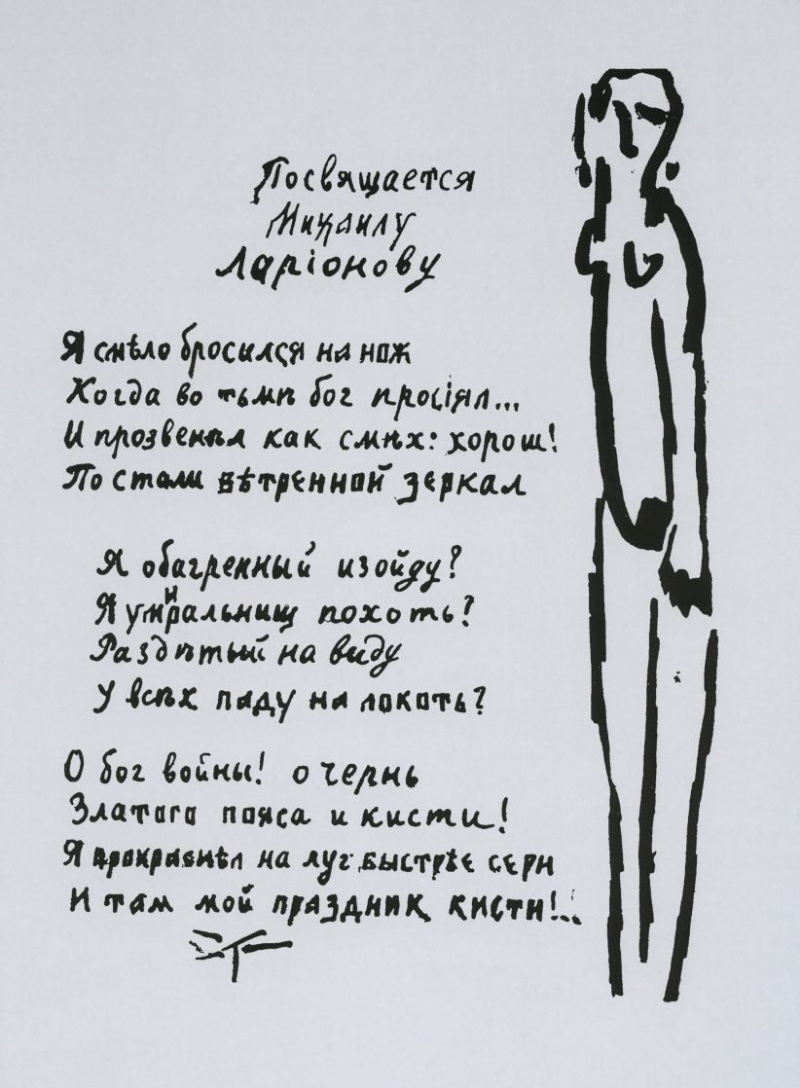 Посвящается
Михаилу
Ларіонову
Я смѣло бросился на нож
Когда во тьмѣ бог просіял...
И прозвенѣл как смѣх: хорош!
По стали вѣтренной зеркал
Я обагренный изойду?
Я умиральниц похоть?
Раздѣтый на виду
У всѣх паду на локоть?
О бог войны! о чернь
Златого пояса и кисти!
Я прокраснѣл на луг быстрѣе серн
И там мой праздник кисти!..